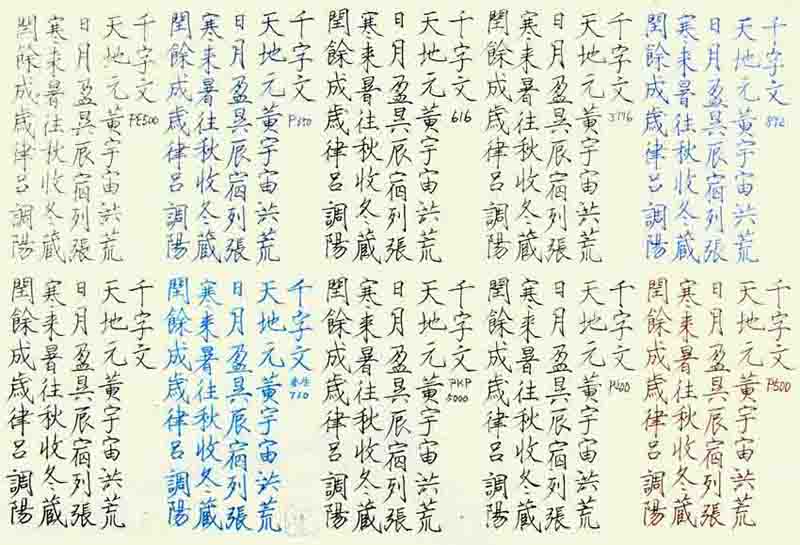 千字文
892
天地元黃宇宙洪荒
日月盈昃辰宿列張
寒来暑往秋收冬藏
閏餘成歲律呂調陽
千字文
3776
天地元黃宇宙洪荒
日月盈昃辰宿列張
寒来暑往秋收冬藏
閏餘成歲律呂調陽
千字文
616
天地元黃宇宙洪荒
日月盈昃辰宿列張
寒来暑往秋收冬藏
閏餘成歲律呂調陽
千字文
天地元黃宇宙洪荒
日月盈昃辰宿列張
寒来暑往秋收冬藏
閏餘成歲律呂調陽
千字文
PE500
天地元黃宇宙洪荒
日月盈昃辰宿列張
寒来暑往秋收冬藏
閏餘成歲律呂調陽
千字文
P500
天地元黃宇宙洪荒
日月盈昃辰宿列張
寒来暑往秋收冬藏
閏餘成歲律呂調陽
千字文
P400
天地元黃宇宙洪荒
日月盈昃辰宿列張
寒来暑往秋收冬藏
閏餘成歲律呂調陽
千字文
PKP
5000
天地元黃宇宙洪荒
日月盈昃辰宿列張
寒来暑往秋收冬藏
閏餘成歲律呂調陽
千字文
永生
710
天地元黃宇宙洪荒
日月盈昃辰宿列張
寒来暑往秋收冬藏
閏餘成歲律呂調陽
千字文
天地元黃宇宙洪荒
日月盈昃辰宿列張
寒来暑往秋收冬藏
閏餘成歲律呂調陽